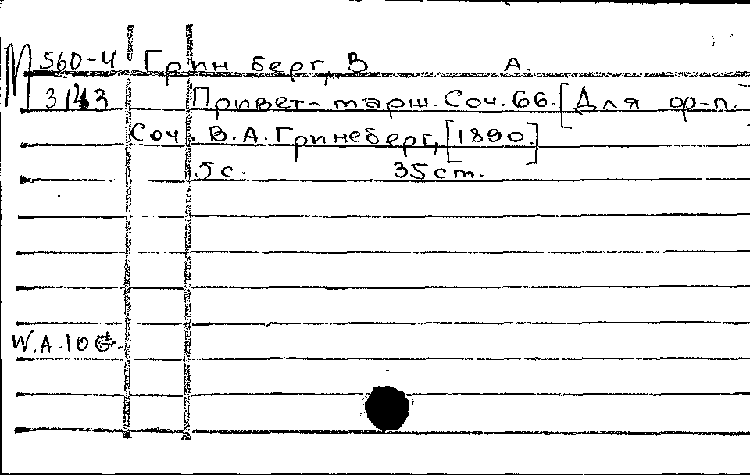 М 560-4 Гринберг, В А.
3143 Привет-марш. Соч. 66. [Для ор-п.
Соч. В. А. Гринеберг, [1890.]
5 с. 35 cm.
W.A.10